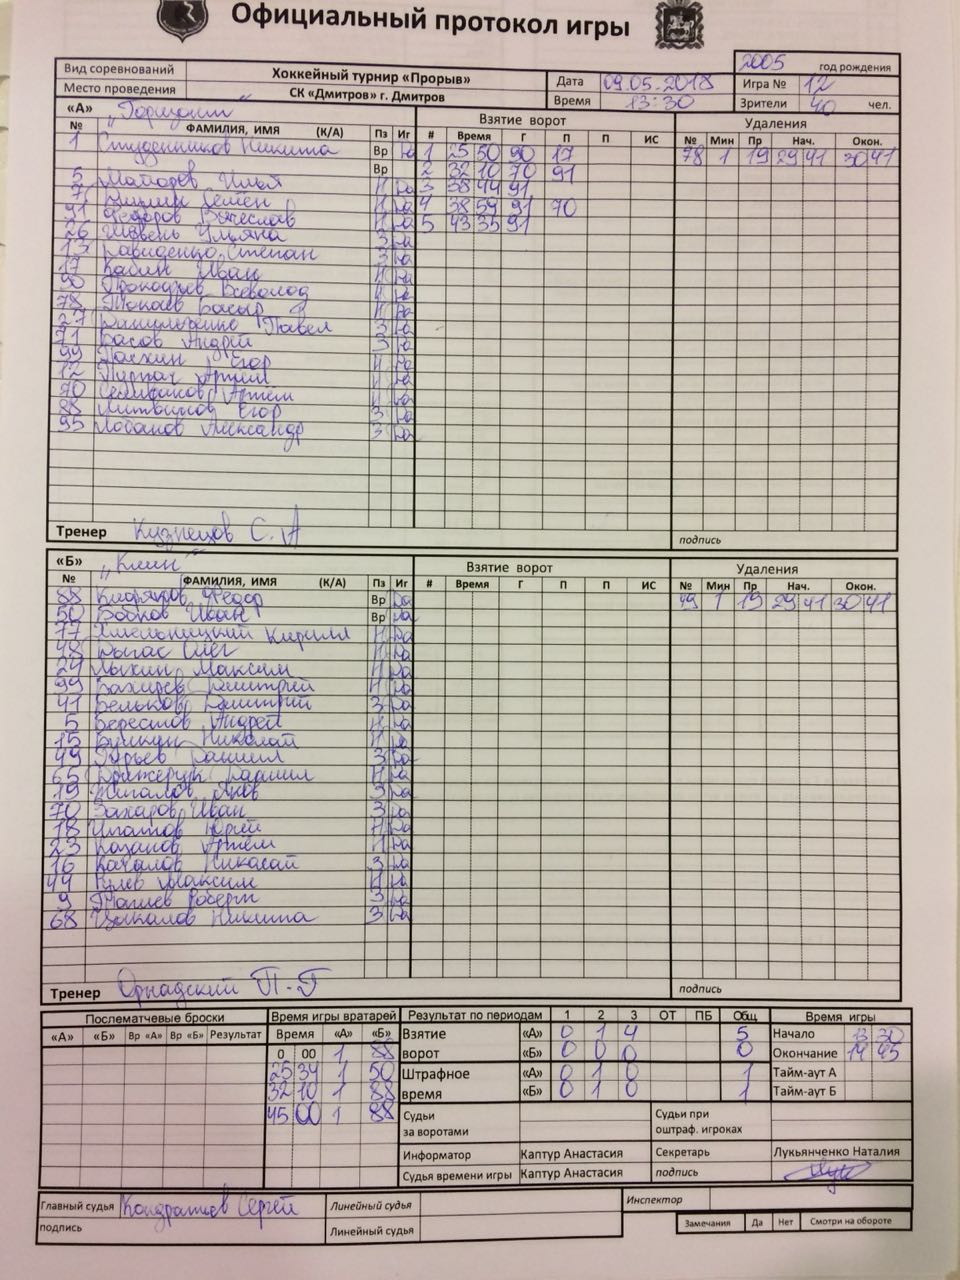 Официальный протокол игры
2005 год рождения
Вид соревнований Хоккейный турнир «Прорыв» Дата 09.05.2018 Игра № 12
Место проведения СК «Дмитров» г. Дмитров Время 13:30 Зрители 40 чел.
«А» Взятие ворот Удаления
№ ФАМИЛИЯ, ИМЯ (К/А) Пз Иг # Время Г П П ИС № Мин Пр Нач. Окон.
1 Студенников Никита Вр 1 25 50 90 17 78 1 19 29 41 30 41
Вр 2 32 10 70 91
5 Илья 3 38 44 91
7 Семён 4 38 59 91 70
91 Федоров Вячеслав 5 43 35 91
26 Ульяна
13 Давиденко Степан
17 Кабин Иван
90 Прокофьев Всеволод
78 Токаев Басыр
27 Павел
71 Басов Андрей
99 Егор
12 Артём
70 Артём
88 Литвинов Егор
95 Лобанов Александр
Тренер Кузнецов С. А
подпись
«Б» „Клин“ Взятие ворот Удаления
№ ФАМИЛИЯ, ИМЯ (К/А) Пз Иг # Время Г П П ИС № Мин Пр Нач. Окон.
88 Федор Вр да 49 1 19 29 41 30 41
50 Бобков Иван Вр да
77 Хмельницкий Кирилл
48 Олег
24 Лыкин Максим
99 Бахирев Дмитрий
41 Бельков Дмитрий
5 Берестов Андрей
15 Николай
49 Гурьев Даниил
65 Даниил
19 Жигалов Яков
70 Захаров Иван
18 Игнатов Юрий
23 Казаков Артём
16 Качалов Николай
44 Рулев Максим
9 Тагиев Роберт
68 Никита
Тренер П.Г
подпись
Послематчевые броски Время игры вратарей Результат по периодам 1 2 3 ОТ ПБ Общ Время игры
«А» «Б» Вр «А» Вр «Б» Результат Время «А» «Б» Взятие «А» 0 1 4 5 Начало 13 30
0 00 1 88 ворот «Б» 0 0 0 0 Окончание 14 45
25 34 1 50 Штрафное «А» 0 1 0 1 Тайм-аут А
32 10 1 88 время «Б» 0 1 0 1 Тайм-аут Б
45 00 1 88 Судьи за воротами Судьи при оштраф. игроках
Информатор Каптур Анастасия Секретарь Лукьянченко Наталия
Судья времени игры Каптур Анастасия подпись
Главный судья Кондратьев Сергей Линейный судья Инспектор
подпись Линейный судья Замечания Да Нет Смотри на обороте